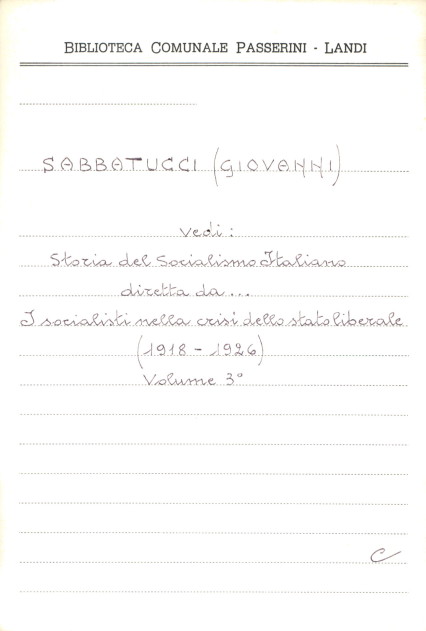 BIBLIOTECA COMUNALE PASSERINI - LANDI
SABBATUCCI (GIOVANNI)
vedi:
Storia del Socialismo Italiano
diretta da...
I socialisti nella crisi dello stato liberale
(1918 - 1926)
Volume 3°
C